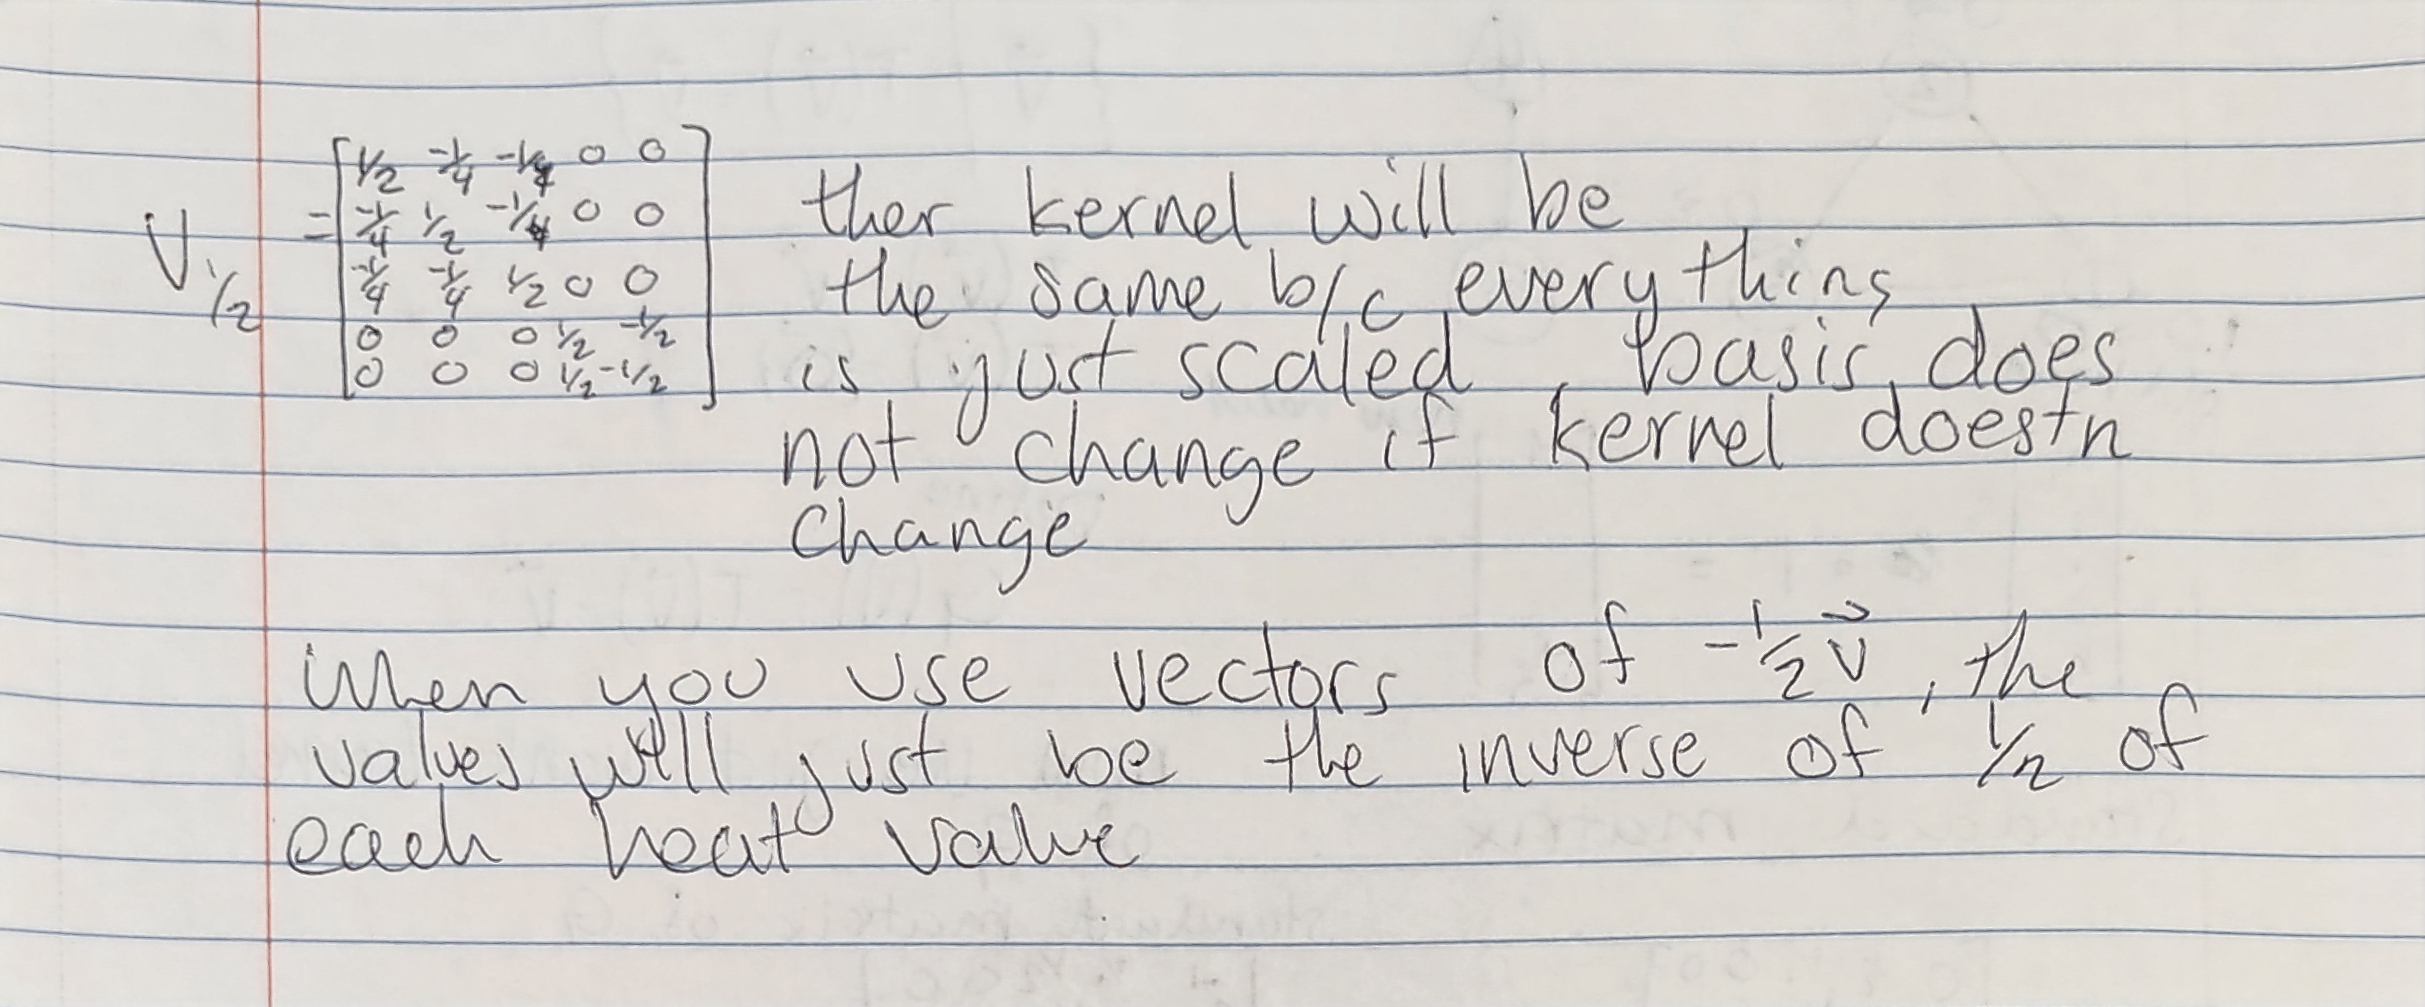 V½ = [ ½ -¼ -¼ 0 0
-¼ ½ -¼ 0 0
-¼ -¼ ½ 0 0
0 0 0 ½ -½
0 0 0 ½ -½ ]
ther kernel will be
the same b/c everything
is just scaled, basis does
not change if kernel doestn
change
When you use vectors of -½v⃗, the
values will just be the inverse of ½ of
each heat value